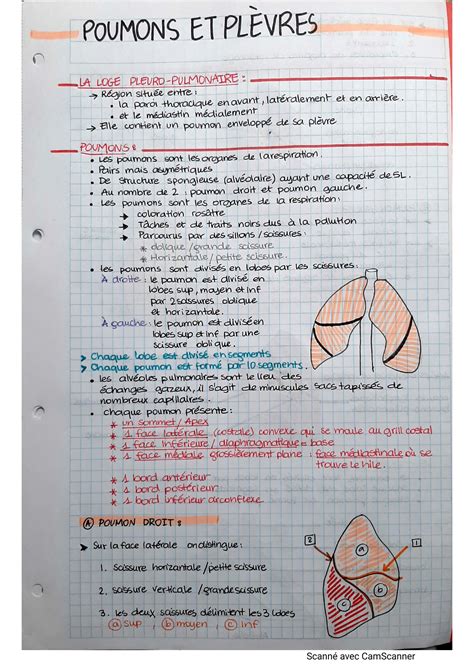 POUMONS ET PLÈVRES
LA LOGE PLEURO-PULMONAIRE :
→ Région située entre :
• la paroi thoracique en avant, latéralement et en arrière.
• et le médiastin médialement
→ Elle contient un poumon enveloppé de sa plèvre
POUMONS :
• Les poumons sont les organes de la respiration.
• Pairs mais asymétriques
• De structure spongieuse (alvéolaire) ayant une capacité de 5L.
• Au nombre de 2 : poumon droit et poumon gauche.
• Les poumons sont les organes de la respiration :
→ coloration rosâtre
→ Tâches et de traits noirs dus à la pollution
→ Parcourus par des sillons / scissures :
* oblique / grande scissure
* Horizontale / petite scissure.
• les poumons sont divisés en lobes par les scissures :
À droite : le poumon est divisé en
lobes sup, moyen et inf
par 2 scissures oblique
et horizontale.
À gauche : le poumon est divisé en
lobes sup et inf par une
scissure oblique.
> Chaque lobe est divisé en segments
> Chaque poumon est formé par 10 segments.
• les alvéoles pulmonaires sont le lieu des
échanges gazeux, il s'agit de minuscules sacs tapissés de
nombreux capillaires.
• chaque poumon présente :
* un sommet / Apex
* 1 face latérale (costale) convexe qui se moule au gril costal
* 1 face inférieure / diaphragmatique = base
* 1 face médiale grossièrement plane : face médiastinale où se
trouve le hile.
* 1 bord antérieur
* 1 bord postérieur
* 1 bord inférieur circonflexe
A POUMON DROIT :
> Sur la face latérale on distingue :
1. Scissure horizontale / petite scissure
2. scissure verticale / grande scissure
3. les deux scissures délimitent les 3 lobes
a sup, b moyen, c inf
2
1
a
b
c
Scanné avec CamScanner